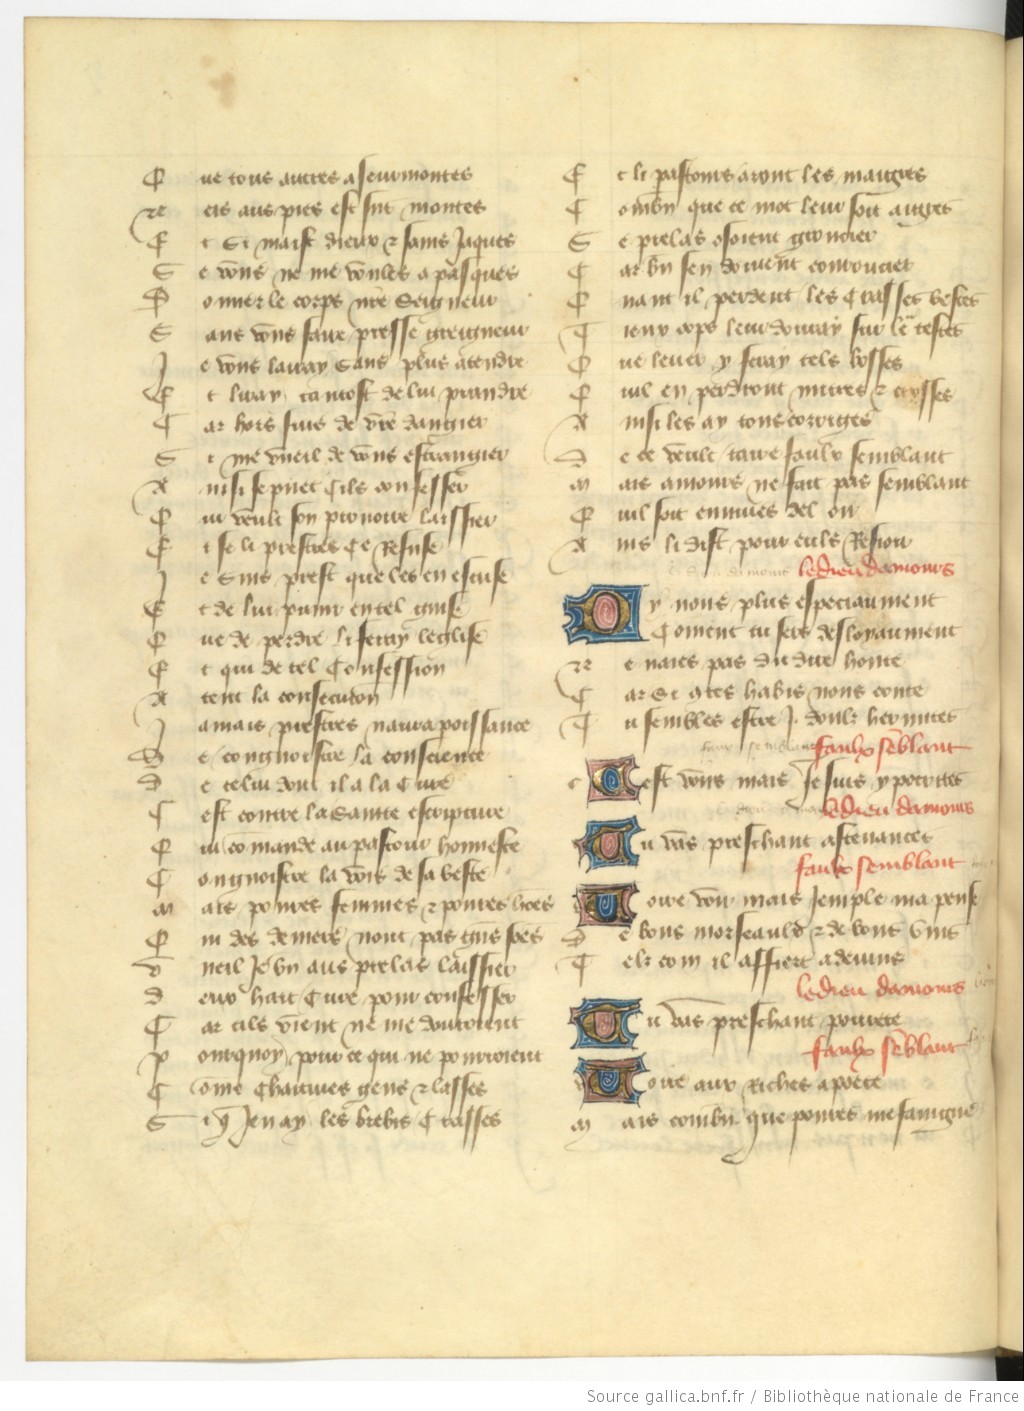 Que tous autres a seurmontes
Re eis aus pies est sus montes
Et Si maist dieux & sains Jaques
Se vous ne me voules a pasques
Donner le corps nre Seigneur
Sans vous faire presse greigneur
Je vous lairay sans plus atendre
Et liray tantost de lui prandre
Car hors suis de vre dangier
Si me vueil de vous estrangier
Ainsi se puet Cils confesser
Qui veult son prouoire laissier
Et se li prestres Ce Refuse
Je Suis prest que les en escuse
Et de lui punir en tel guise
Que de perdre li feray leglise
Et qui de tel Confession
Atent la consecucion
Jamais prestres naura poissance
De Congnoistre la conscience
De celui dont il a la Cure
Cest contre la Sainte escripture
Qui comande au pastour honneste
Congnoistre la vois de sa beste
Mais poures femmes & poures hoes
Qui des deniers nont pas gns soes
Vueil Je bn aus prelas laissier
D eux hait Cure pour confesser
Car cils vient ne me donroient
Pourquoy pour ce qui ne pourroient
Come Chaitiues gens & lasses
Si q Jen ay les brebis Crasses
Et li pastours aront les maigres
Combn que ce mot leur soit aigres
Se prelas osoient groucier
Car bn sen doiuent couroucier
Quant il perdent les Crasses bestes
Tieux cops leur donray sur les testes
Que leuer y feray tels bosses
Quil en perdront mitres & crosses
Ainsi les ay tous corriges
De ce veult taire faulx semblant
Mais amours ne fait pas semblant
Quil soit ennuies del oir
Ains li dist pour euls Resioir
le dieu damours
Dy nous plus especiaument
Coment tu sers desloyaument
Ne naies pas du dire honte
Car Si 9 tes habis nous conte
Tu sembles estre J. doulz hermites
faulx seblant
Cest vous mais Je suis ypocrites
le dieu damours
Tu vas preschant astenances
faulx semblant
Voire voir mais Jemple ma panse
De bons morseaulx & de bons Vins
Telx com il affiert a deuins
le dieu damours
Tu vas preschant pourete
faulx seblant
Voire aux Riches a poete
Mais combn que poures me faingne
Source gallica.bnf.fr / Bibliothèque nationale de France